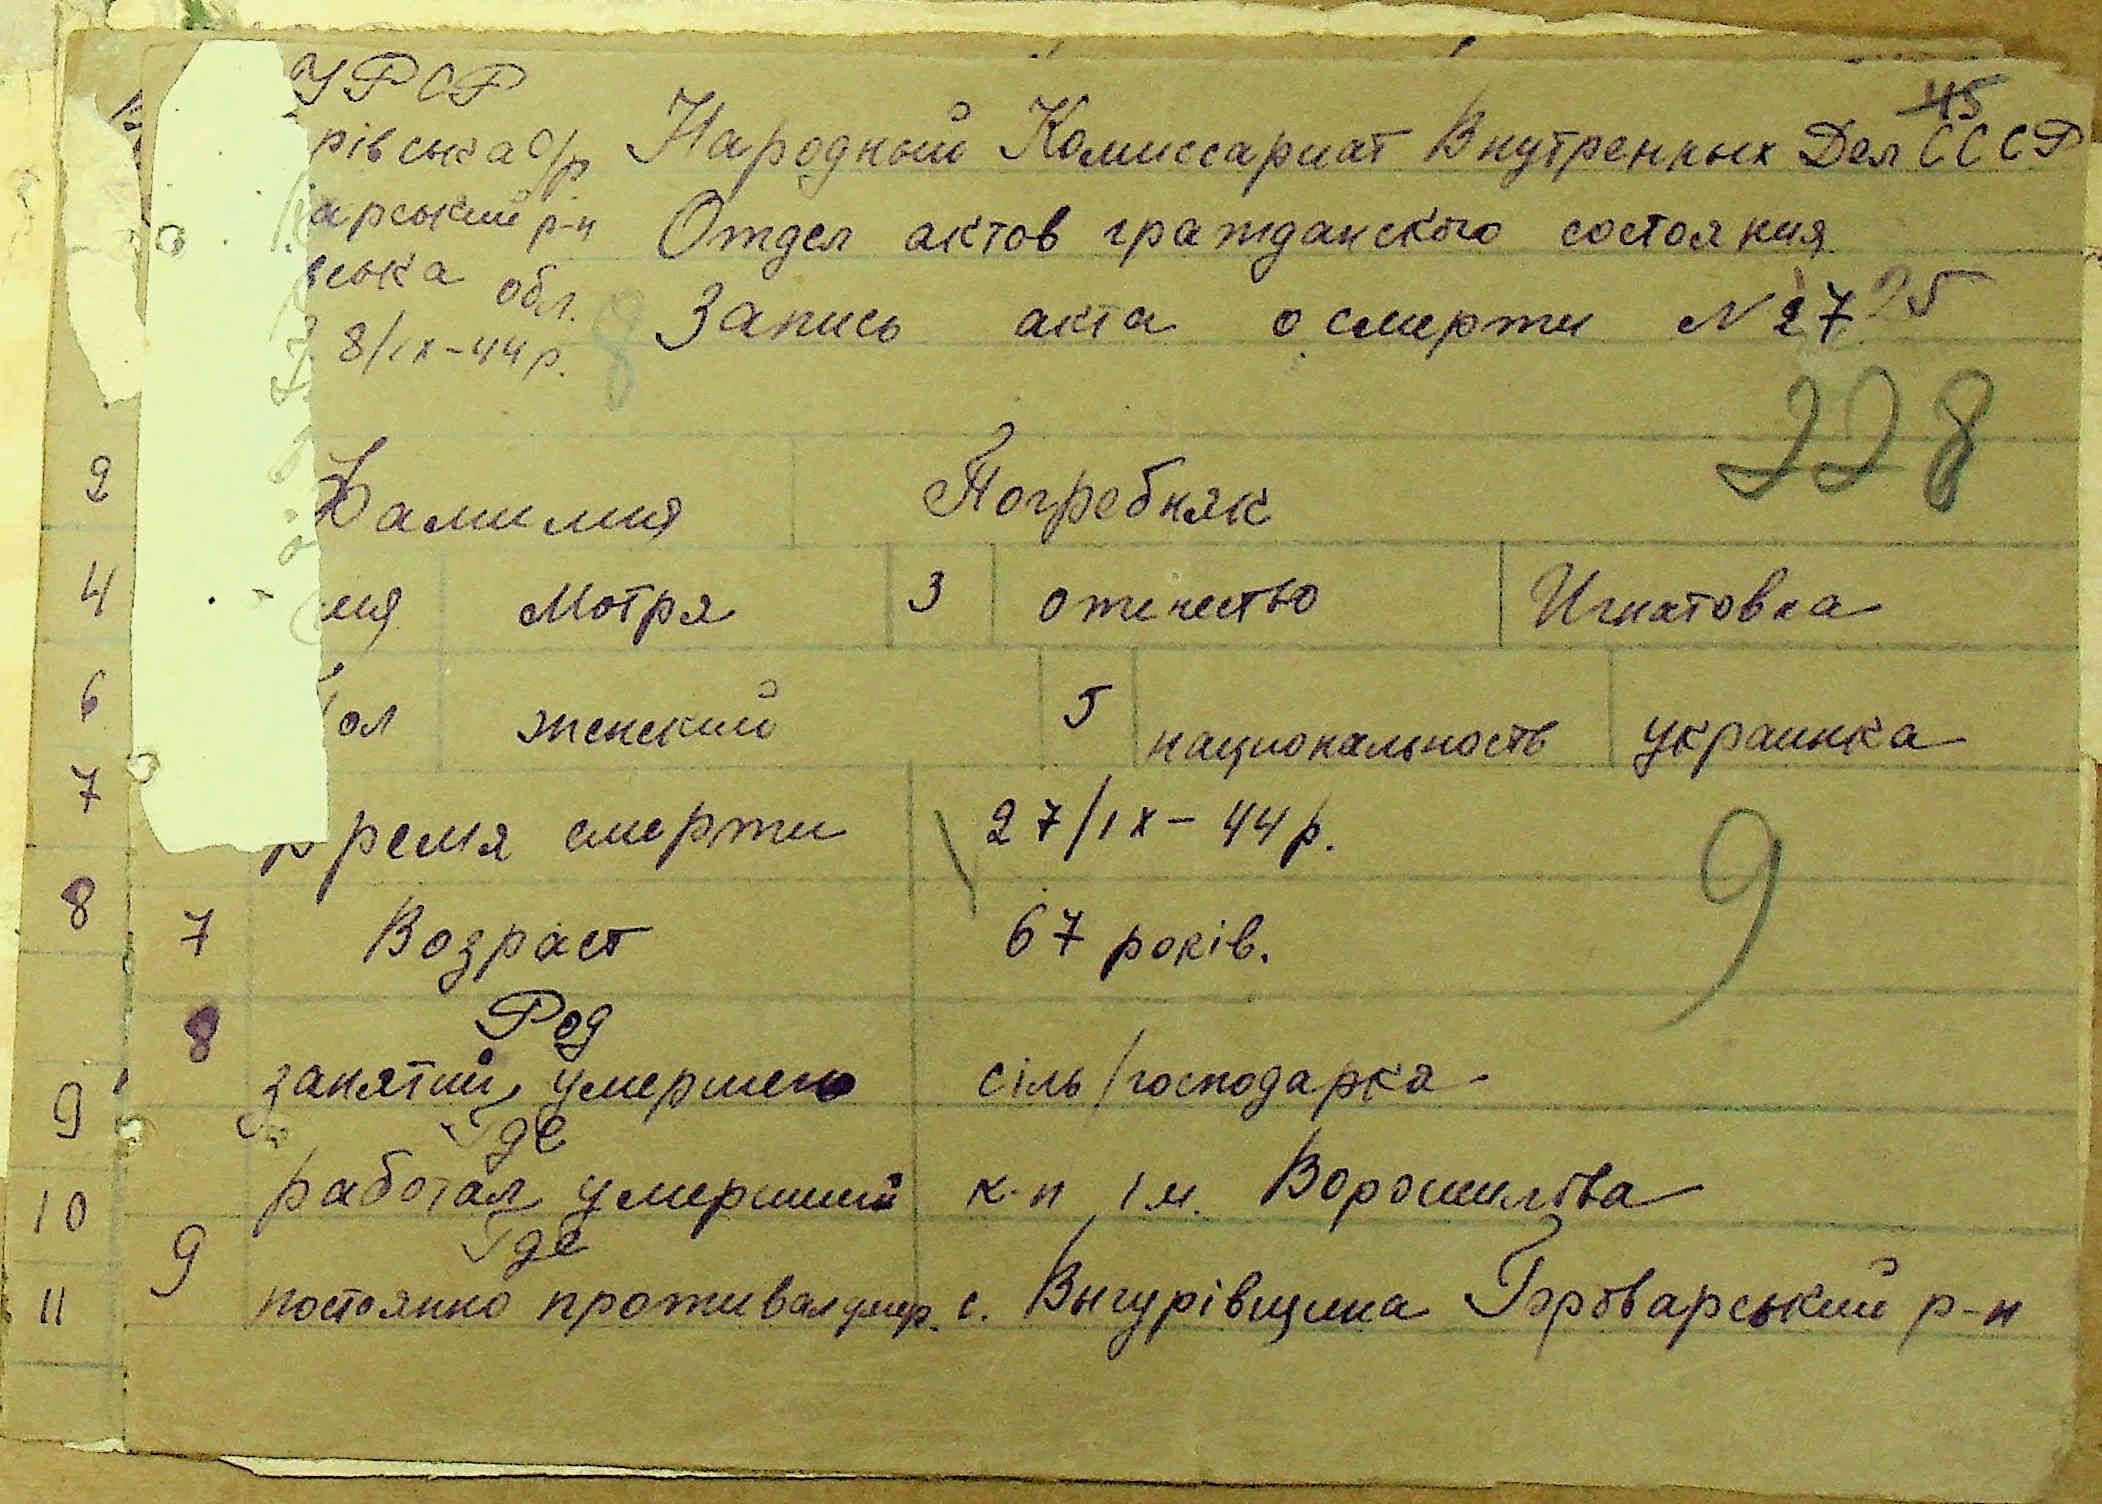 УРСР
45
рівська с/р Народный Комиссариат Внутренных Дел СССР
арський р-н Отдел актов гражданского состояния
вська обл.
Запись акта о смерти N 27 25
8/IX-44 р.
8
228
2
Фамилия Погребняк
4
мя Мотря 3 отечество Игнатовна
6
ол женский 5 национальность украинка
7
Время смерти 27/IX-44 р.
9
8
7 Возраст 67 років.
8 Род
занятий умершего сіль/господарка
9
Где
работал умерший к-п ім. Ворошилова
10
Где
9
постоянно проживал умер. с. ВыгурівщинаБроварський р-н
11